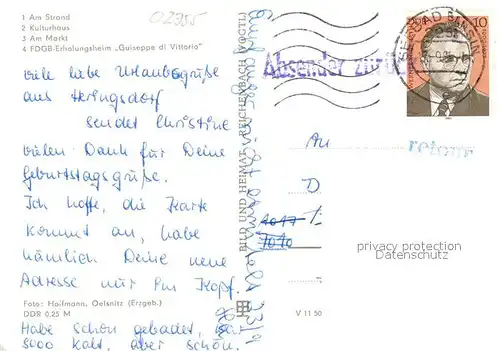 1 Am Strand
2 Kulturhaus
3 Am Markt
4 FDGB-Erholungsheim „Guiseppe di Vittorio"
02355
viele liebe Urlaubsgrüße
aus Heringsdorf
sendet Christine
vielen Dank für Deine
Geburtstagsgrüße.
Ich hoffe, die Karte
kommt an, habe
nämlich Deine neue
Adresse nur im Kopf.
Foto: Haifmann, Oelsnitz (Erzgeb.)
DDR 0.25 M
V 11 50
Habe schön gebadet, war
sooo kalt, aber schön.
BILD UND HEIMAT REICHENBACH (VOGTL)
Absender zurück
SEEBAD BANSIN
DDR
10
retour
An
D
7010
privacy protection
Datenschutz